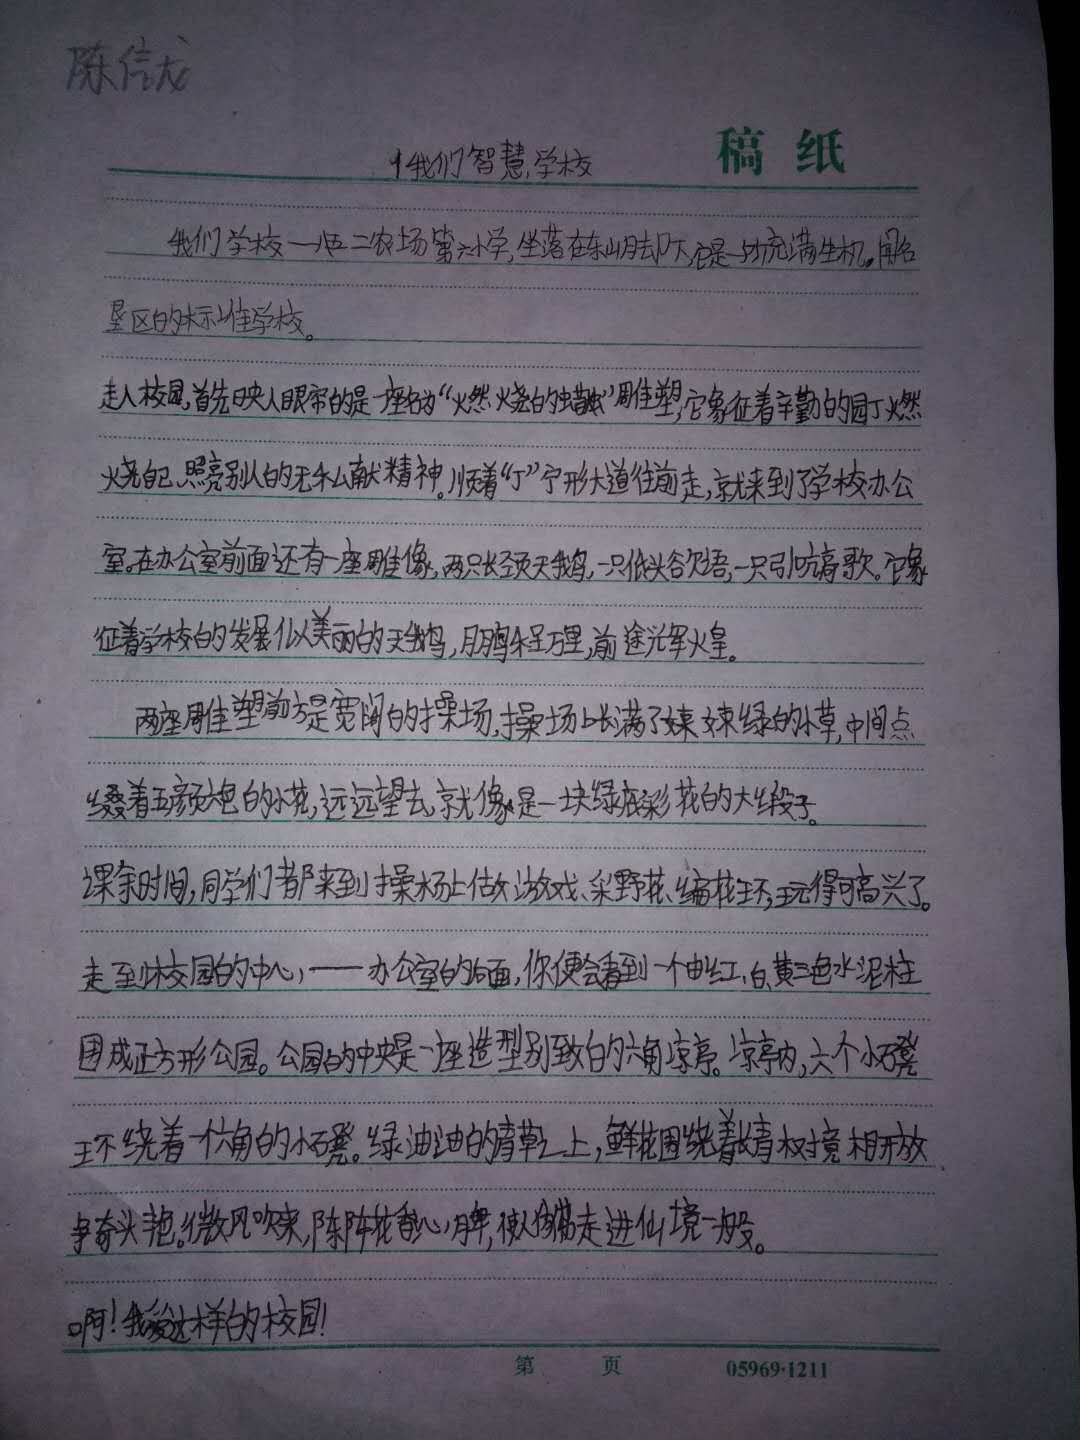 陈信龙
稿 纸
我们智慧学校
我们学校一八五二农场第六小学,坐落在东山脚下,它是一所充满生机。闻名
垦区的标准学校。
走入校园,首先映入眼帘的是一座名为“燃烧的蜡烛”雕塑,它象征着辛勤的园丁燃
烧自己、照亮别人的无私献精神。顺着“丁”字形大道往前走,就来到了学校办公
室。在办公室前面还有一座雕像,两只长颈天鹅,一只低头欲语,一只引吭高歌。它象
征着学校的发展似美丽的天鹅,鹏程万里,前途光辉煌。
两座雕塑前方是宽阔的操场,操场上长满了嫩嫩绿的小草,中间点
缀着五颜六色的小花,远远望去,就像是一块绿底彩花的大缎子。
课余时间,同学们都来到操场上做游戏、采野花、编花环,玩得可高兴了。
走到校园的中心,——办公室的后面,你便会看到一个由红、白、黄三色水泥柱
围成正方形公园。公园的中央是一座造型别致的六角凉亭。凉亭内,六个小石凳
环绕着一个六角的小石凳。绿油油的青草之上,鲜花围绕着长青树竞相开放
争奇斗艳。微风吹来,阵阵花香心脾,使人仿佛走进仙境一般。
啊!我爱这样的校园!
第 页 05969·1211